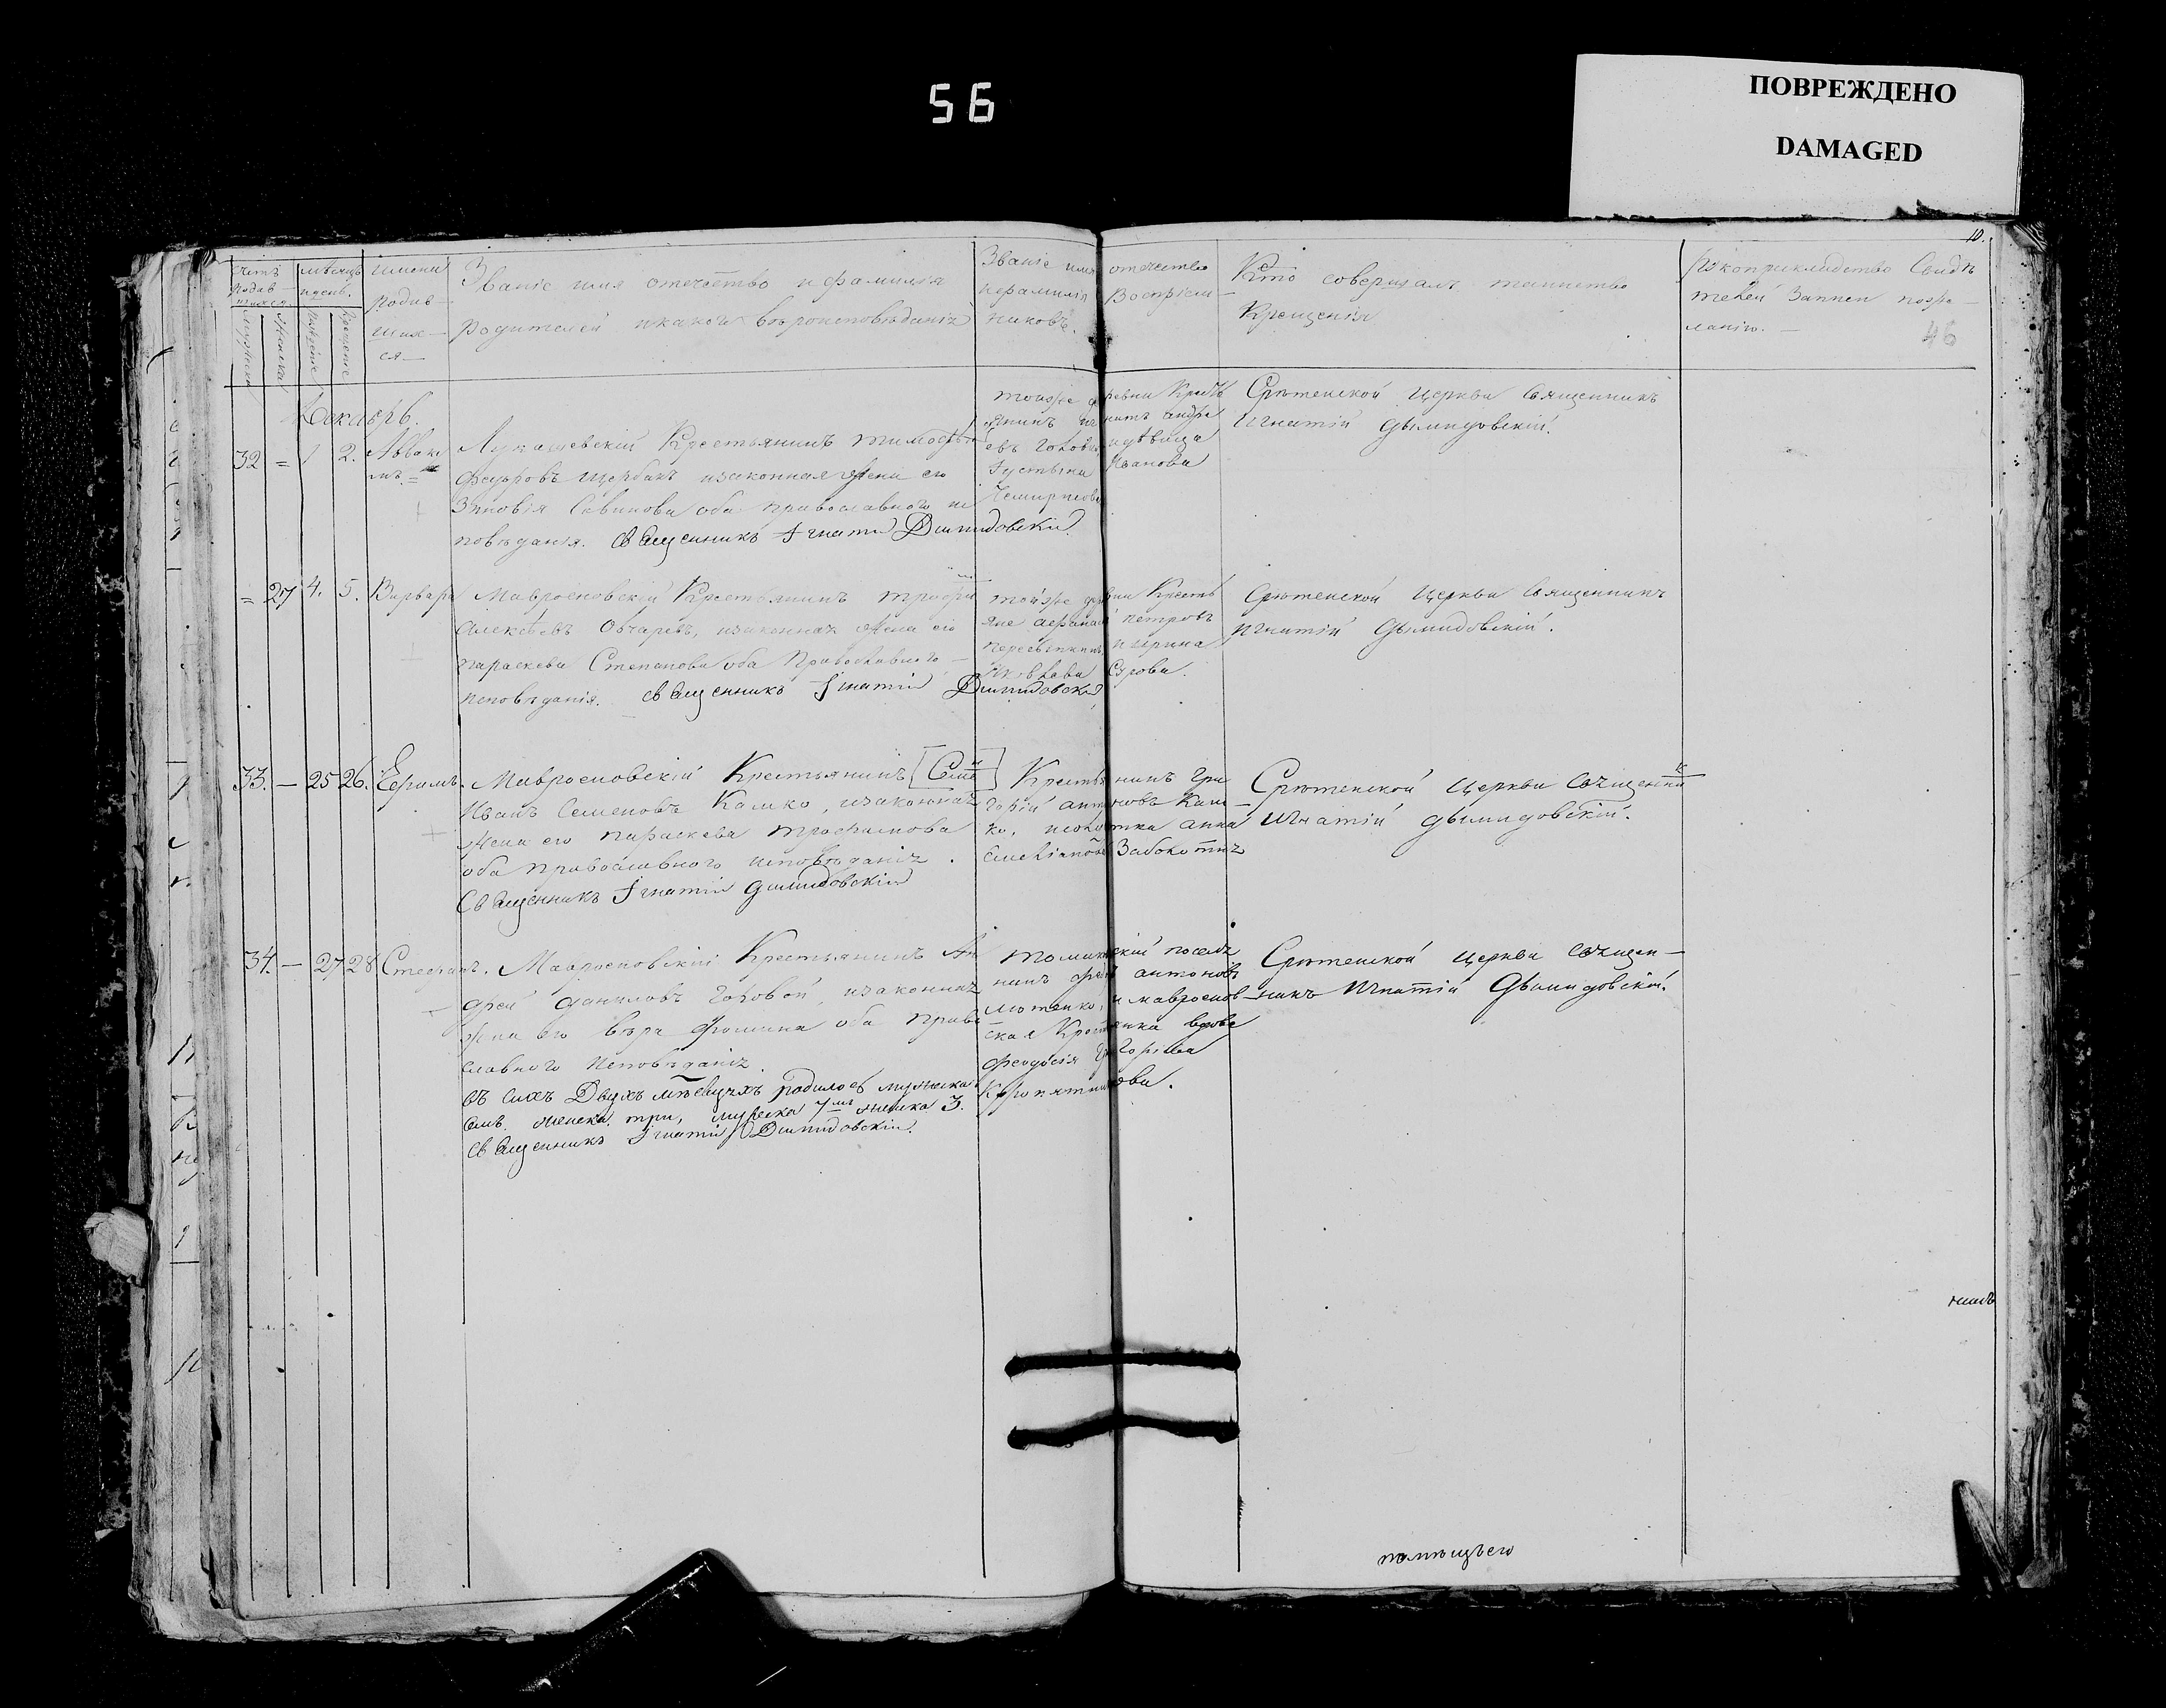 56
ПОВРЕЖДЕНО
DAMAGED
10.
46
Счетъ родив-шихся
Мужеска
Женска
Мѣсяцъ и день.
Рожденіе
Крещеніе
Имена родив-
шихъ-
ся
Званіе имя отечество и фамилія
родителей и какого вѣроисповѣданія
Званіе имя отечество
и фамилія Воспріем-
никовъ.
Кто совершалъ таинство
Крещенія
Рукоприкладство Свидѣ
телей Записи по же-
ланію.
Декабрь.
32 = 1 2. Аввакумъ =
Лукашевскій Крестьянинъ Тимофѣй
Федоровъ Щербакъ и законная жена его
Зиновія Савинова оба православного ис
повѣданія. Священникъ Ігнатій Дымидовскій
тойже деревни Кресть
янинъ Игнатъ Андре
евъ Головко, и дѣвица
Іустина Иванова
Срѣтенской Церкви Священникъ
Игнатій Дымидовскій.
= 27 4. 5. Варвара
Мавроеновскій Крестьянинъ Трофим
Алексѣевъ Овчаревъ, и законная жена его
Параскева Степанова оба Православного
исповѣданія. Священникъ Ігнатій Дымидовскій
тойже деревни Кресть
яне Афанасій Петровъ
и Ирина
Яковлева Сурова.
Срѣтенской Церкви Священникъ
Игнатій Дымидовскій.
33. — 25 26. Ефимъ.
Мавроеновскій Крестьянинъ [Семе]
Иванъ Семеновъ Кашко, и законная
Жена его Параскева Трофимова
оба православного исповѣданія.
Священникъ Ігнатій Дымидовскій
Крестьянинъ Гри
горій Антоновъ Каш-
ко, Анна
Емеліанова Заболотня
Срѣтенской Церкви Священни
къ
Игнатій Дымидовскій.
34. — 27 28 Стефанъ.
Мавроеновскій Крестьянинъ Ан
дрей Даниловъ Головой, и законная
жена его Вѣра Фомина оба право
славного Исповѣданія.
Въ сихъ Двухъ мѣсяцахъ родилось мужеска
семь. женска три, мужеска 7мъ женска 3.
Священникъ Ігнатій Дымидовскій.
поселя
нинъ Антоновъ
и мавроенов-
ская Крестьянка вдова
Феодосія Григоріева
Кропятникова.
Срѣтенской Церкви Священ-
никъ Игнатій Дымидовскій.
помѣщьего